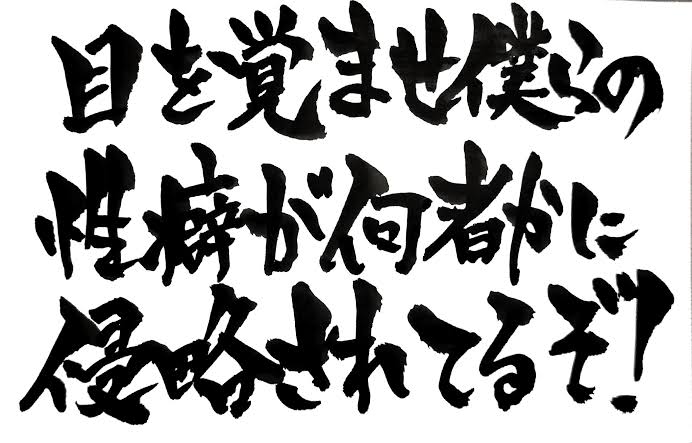 目を覚ませ僕らの
性癖が何者かに
侵略されてるぞ!